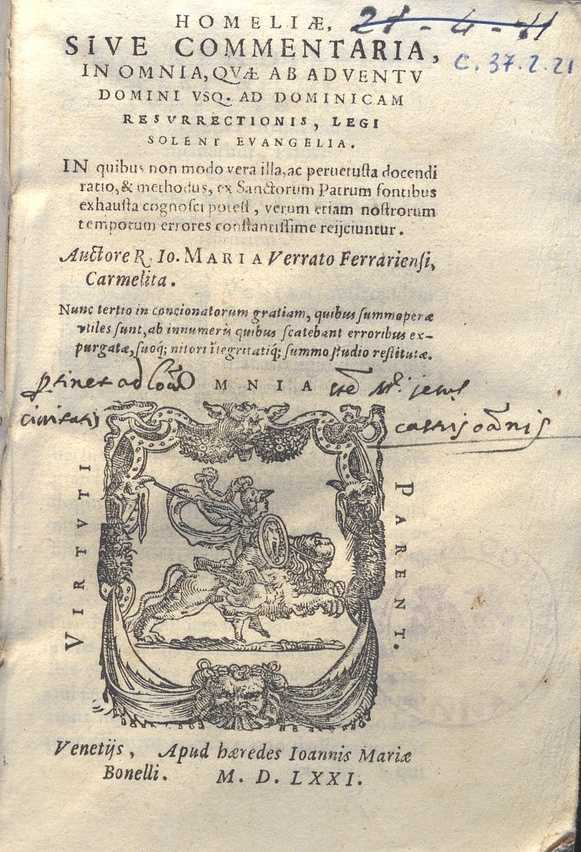 HOMELIÆ,
21 - 4 - 11
SIVE COMMENTARIA,
C. 37. 2. 21
IN OMNIA, QVÆ AB ADVENTV
DOMINI VSQ. AD DOMINICAM
RESVRRECTIONIS, LEGI
SOLENT EVANGELIA.
IN quibus non modo vera illa, ac peruetusta docendi
ratio, & methodus, ex Sanctorum Patrum fontibus
exhausta cognosci potest, verum etiam nostrorum
temporum errores constantissime reijciuntur.
Auctore R. Io. MARIA Verrato Ferrariensi,
Carmelita.
Nunc tertio in concionatorum gratiam, quibus summoperæ
vtiles sunt, ab innumeris quibus scatebant erroribus ex-
purgatæ, suoq; nitori ītegritatiq; summo studio restitutæ.
OMNIA
castri
VIRTVTI
PARENT.
Venetijs, Apud hæredes Ioannis Mariæ
Bonelli. M. D. LXXI.